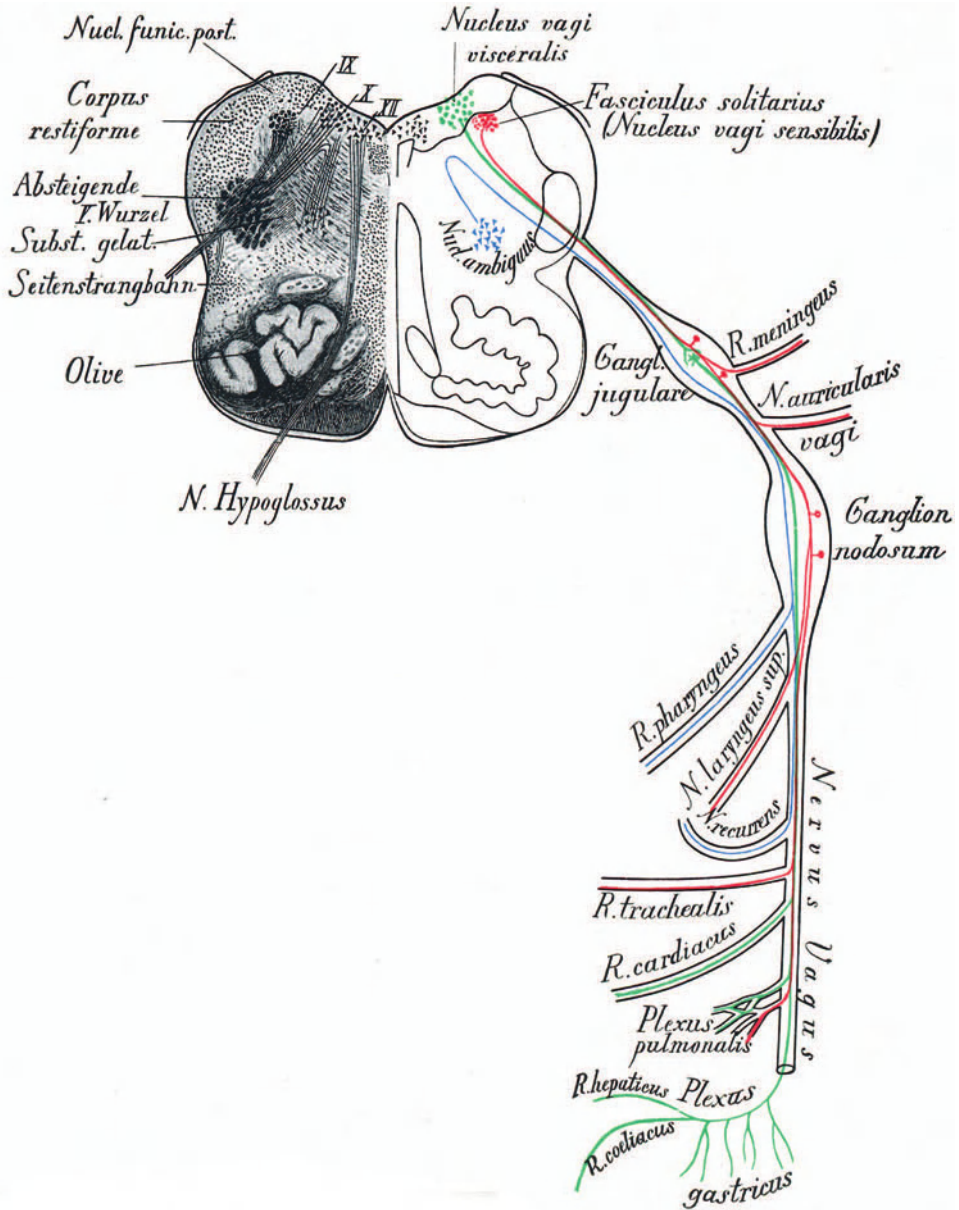 Nucl. funic. post.
IX
X
XII
Corpus
restiforme
Absteigende
V. Wurzel
Subst. gelat.
Seitenstrangbahn
Olive
N. Hypoglossus
Nucleus vagi
visceralis
Fasciculus solitarius
(Nucleus vagi sensibilis)
Nucl. ambiguus
Gangl.
jugulare
R. meningeus
N. auricularis
vagi
Ganglion
nodosum
R. pharyngeus
N. laryngeus sup.
N. recurrens
Nervus Vagus
R. trachealis
R. cardiacus
Plexus
pulmonalis
R. hepaticus
Plexus
R. coeliacus
gastricus